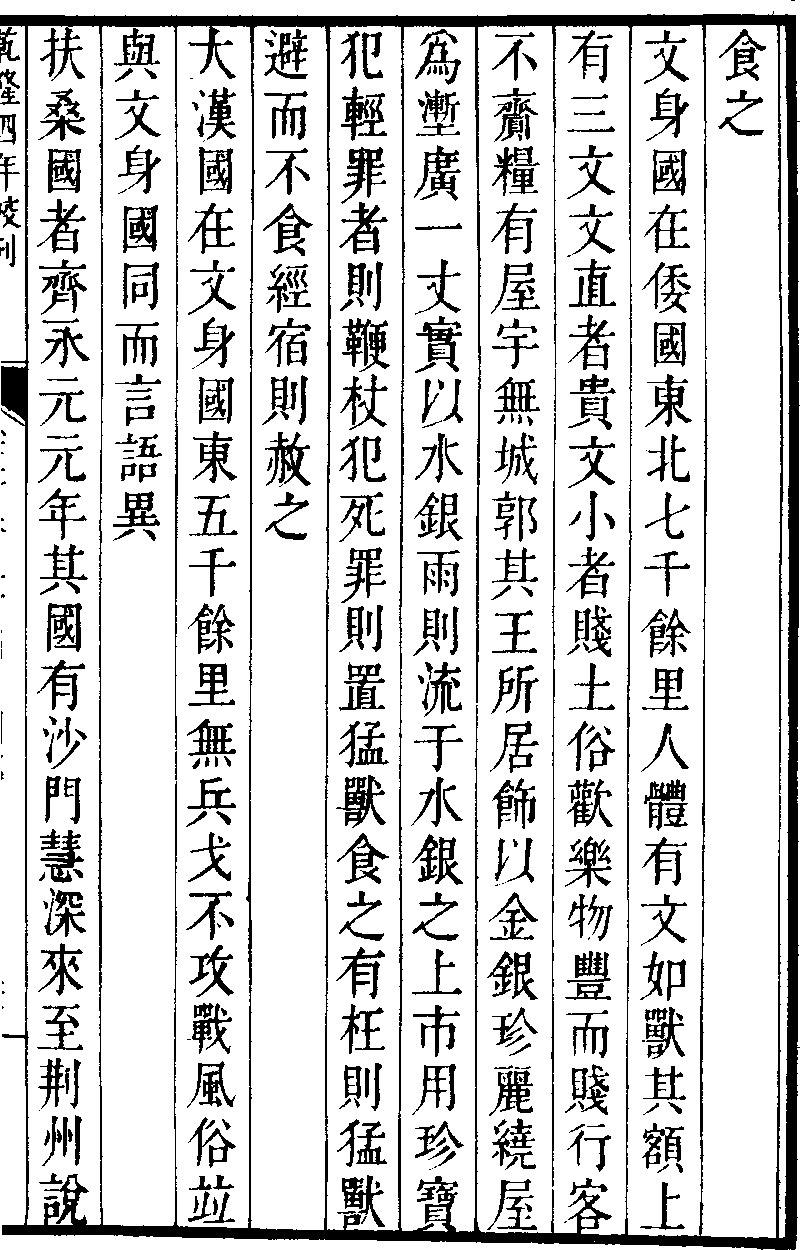 食之
文身國在倭國東北七千餘里人體有文如獸其額上
有三文文直者貴文小者賤土俗歡樂物豐而賤行客
不齎糧有屋宇無城郭其王所居飾以金銀珍麗繞屋
爲壍廣一丈實以水銀雨則流于水銀之上市用珍寶
犯輕罪者則鞭杖犯死罪則置猛獸食之有枉則猛獸
避而不食經宿則赦之
大漢國在文身國東五千餘里無兵戈不攻戰風俗竝
與文身國同而言語異
扶桑國者齊永元元年其國有沙門慧深來至荆州說
乾隆四年校刊